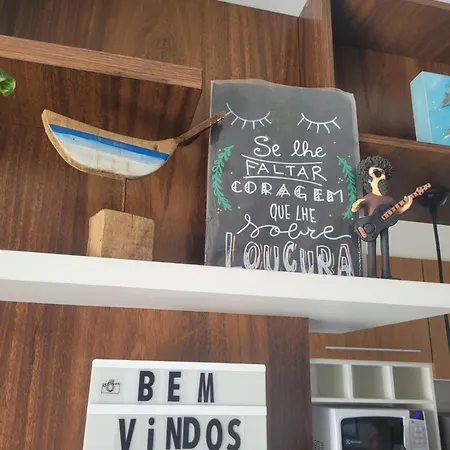 Se lhe
FALTAR
CORAGEM
QUE LHE
sobre
LOUCURA
BEM
ViNDOS